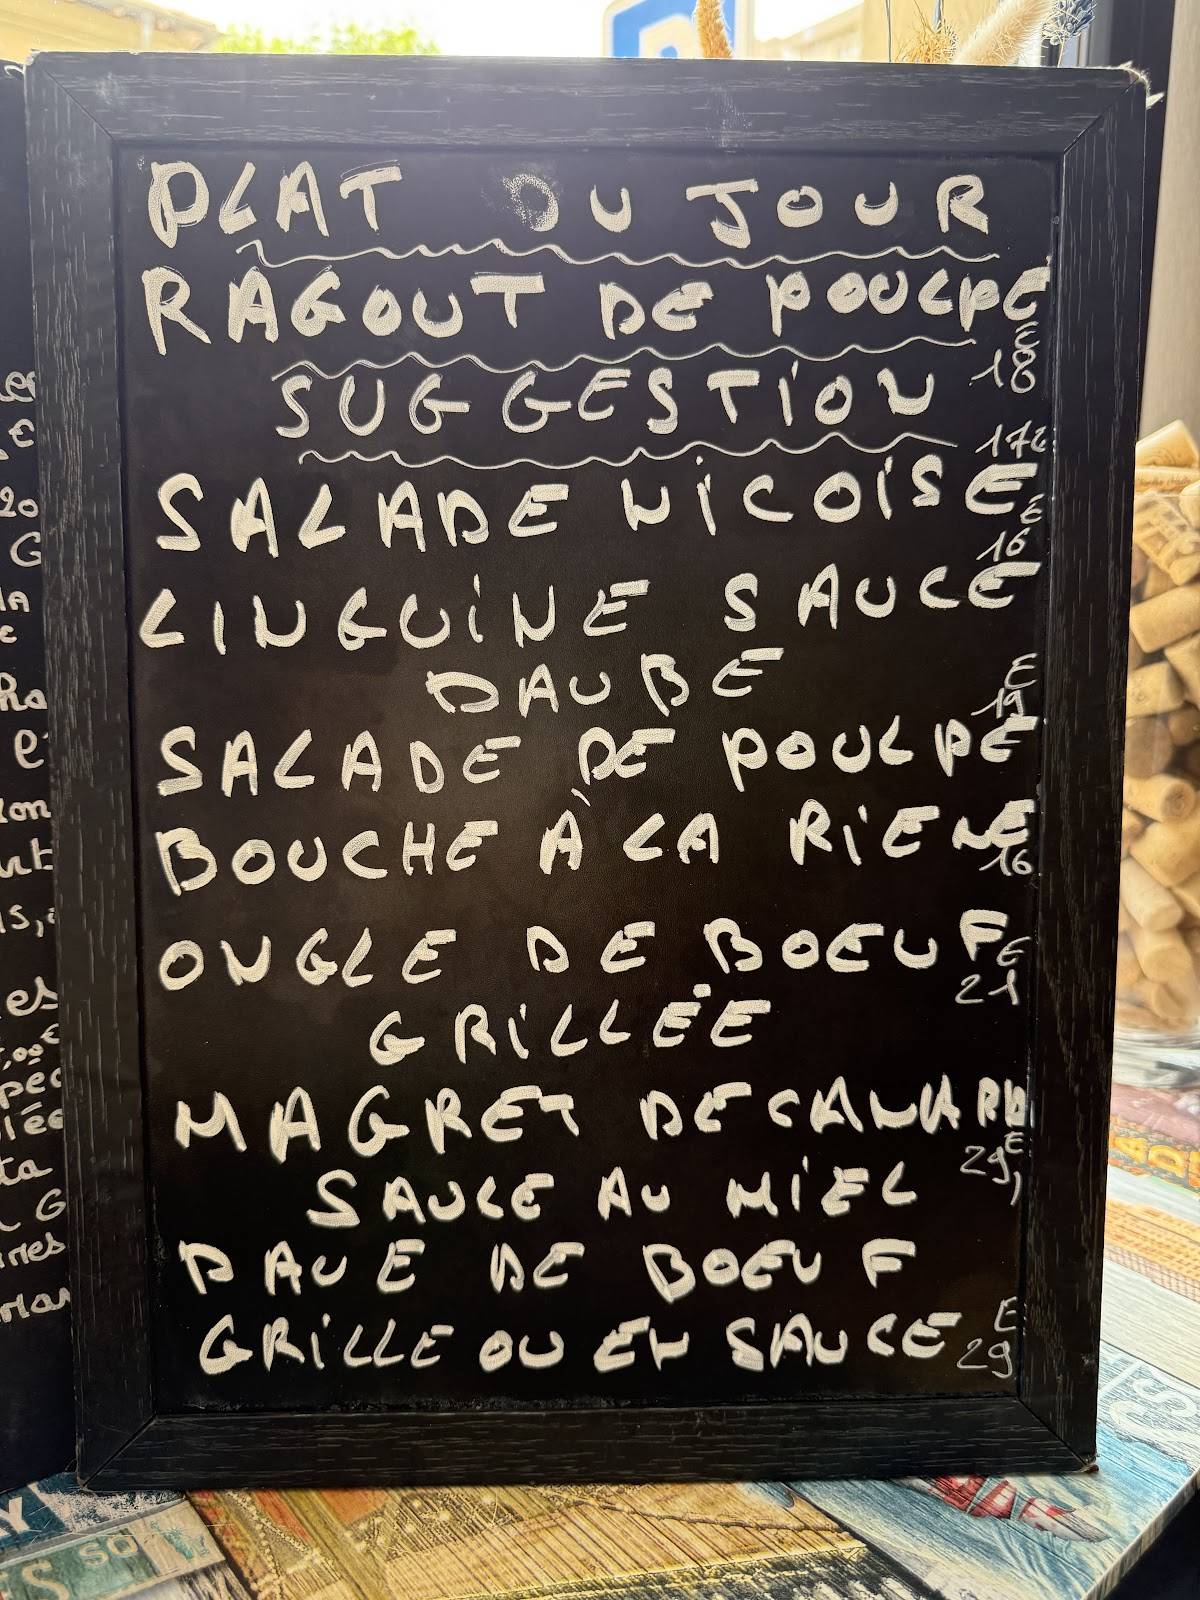 PLAT DU JOUR
RAGOUT DE POULPE
18€
SUGGESTION
17€
SALADE NICOISE
16€
LINGUINE SAUCE
DAUBE
19€
SALADE DE POULPE
BOUCHE À LA RIENE
16
ONGLE DE BOEUF
21€
GRILLÉE
MAGRET DE CANARD
29€
SAUCE AU MIEL
DAUE DE BOEUF
GRILLE OU EN SAUCE 29€